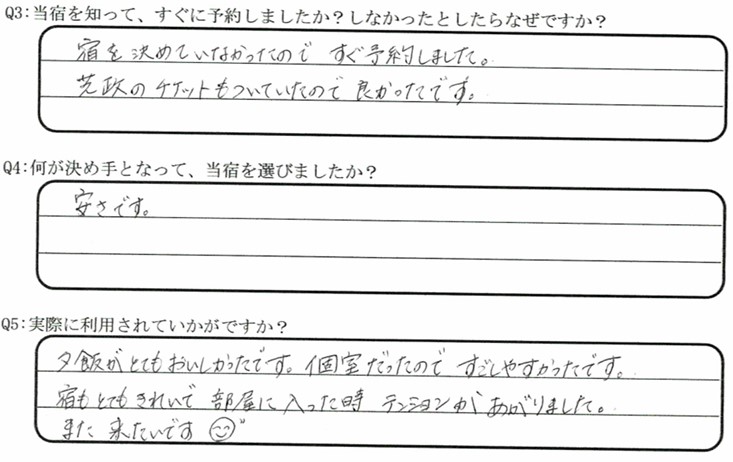 Q3:当宿を知って、すぐに予約しましたか？しなかったとしたらなぜですか？
宿を決めていなかったので すぐ予約しました。
芝政のチケットもついていたので 良かったです。
Q4:何が決め手となって、当宿を選びましたか？
安さです。
Q5:実際に利用されていかがですか？
夕飯がとてもおいしかったです。個室だったので すごしやすかったです。
宿もとてもきれいで 部屋に入った時 テンションがあがりました。
また 来たいです